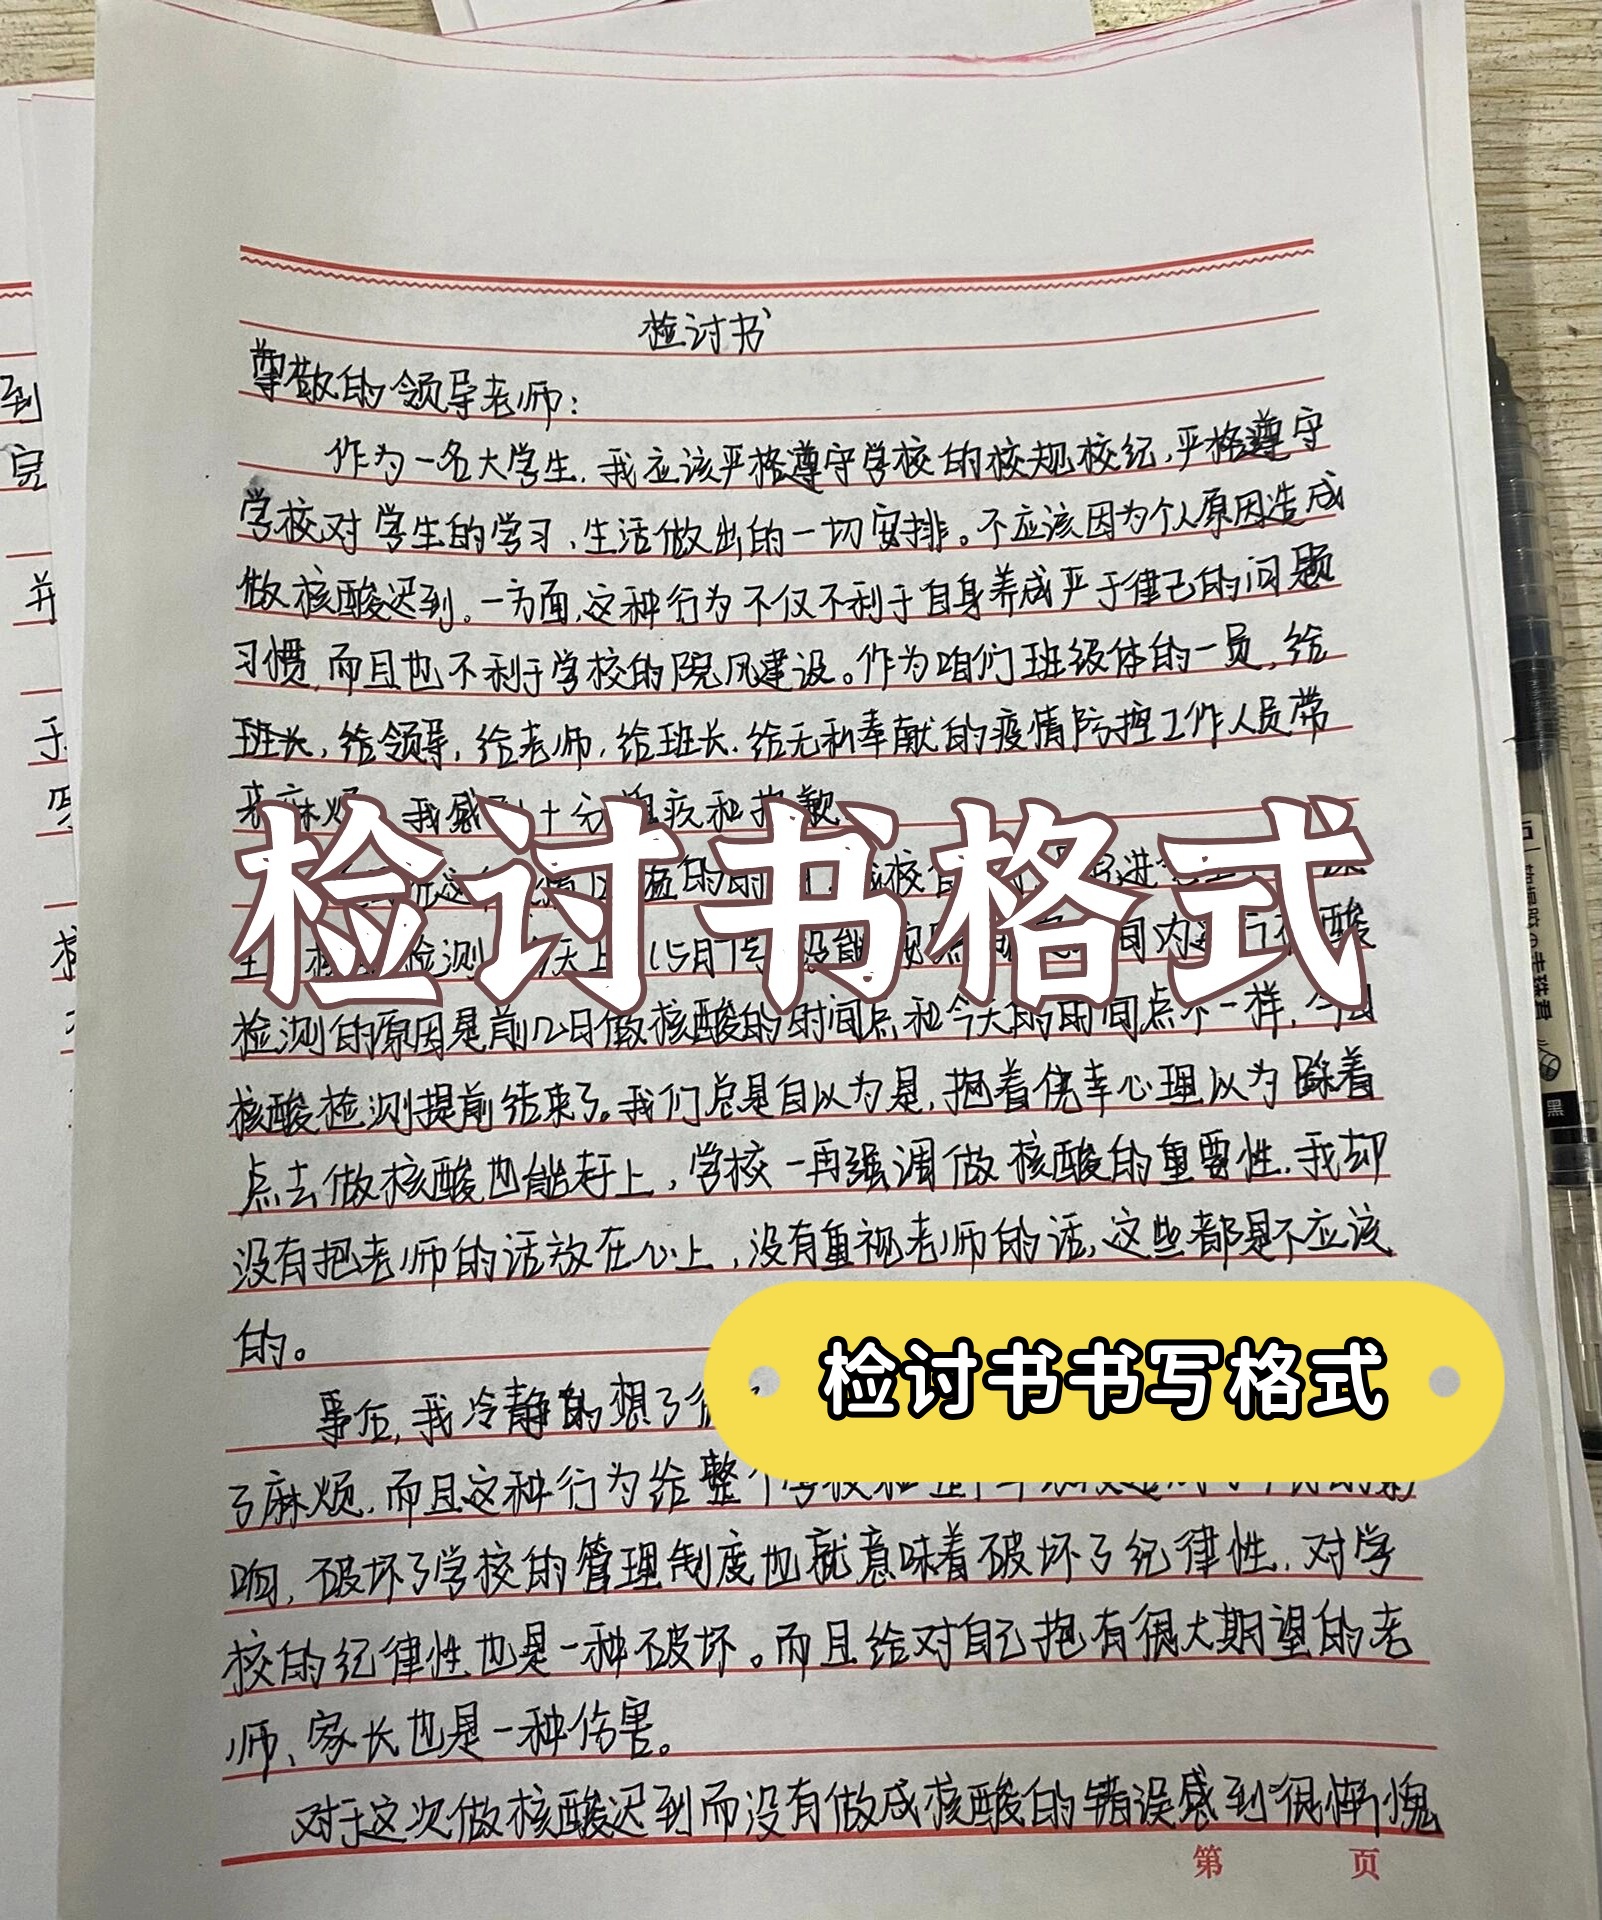 检讨书
尊敬的领导老师:
作为一名大学生,我应该严格遵守学校的校规校纪,严格遵守
学校对学生的学习、生活做出的一切安排。不应该因为个人原因造成
做核酸迟到。一方面,这种行为不仅不利于自身养成严于律己的问题
习惯,而且也不利于学校的院风建设。作为咱们班级体的一员,给
班长,给领导,给老师,给班长,给无私奉献的疫情防控工作人员带
来麻烦 我感到十分愧疚和抱歉
检讨书格式
检测的原因是前几日做核酸的时间点和今天的时间点不一样,今日
核酸检测提前结束了。我们总是自以为是,抱着侥幸心理以为踩着
点去做核酸也能赶上,学校一再强调做核酸的重要性,我却
没有把老师的话放在心上,没有重视老师的话,这些都是不应该
的。
检讨书书写格式
事后,我冷静的想了
了麻烦,而且这种行为给整个学校
响,破坏了学校的管理制度也就意味着破坏了纪律性,对学
校的纪律性也是一种破坏。而且给对自己抱有很大期望的老
师、家长也是一种伤害。
对于这次做核酸迟到而没有做成核酸的错误感到很惭愧
第 页
到
完
并
黑